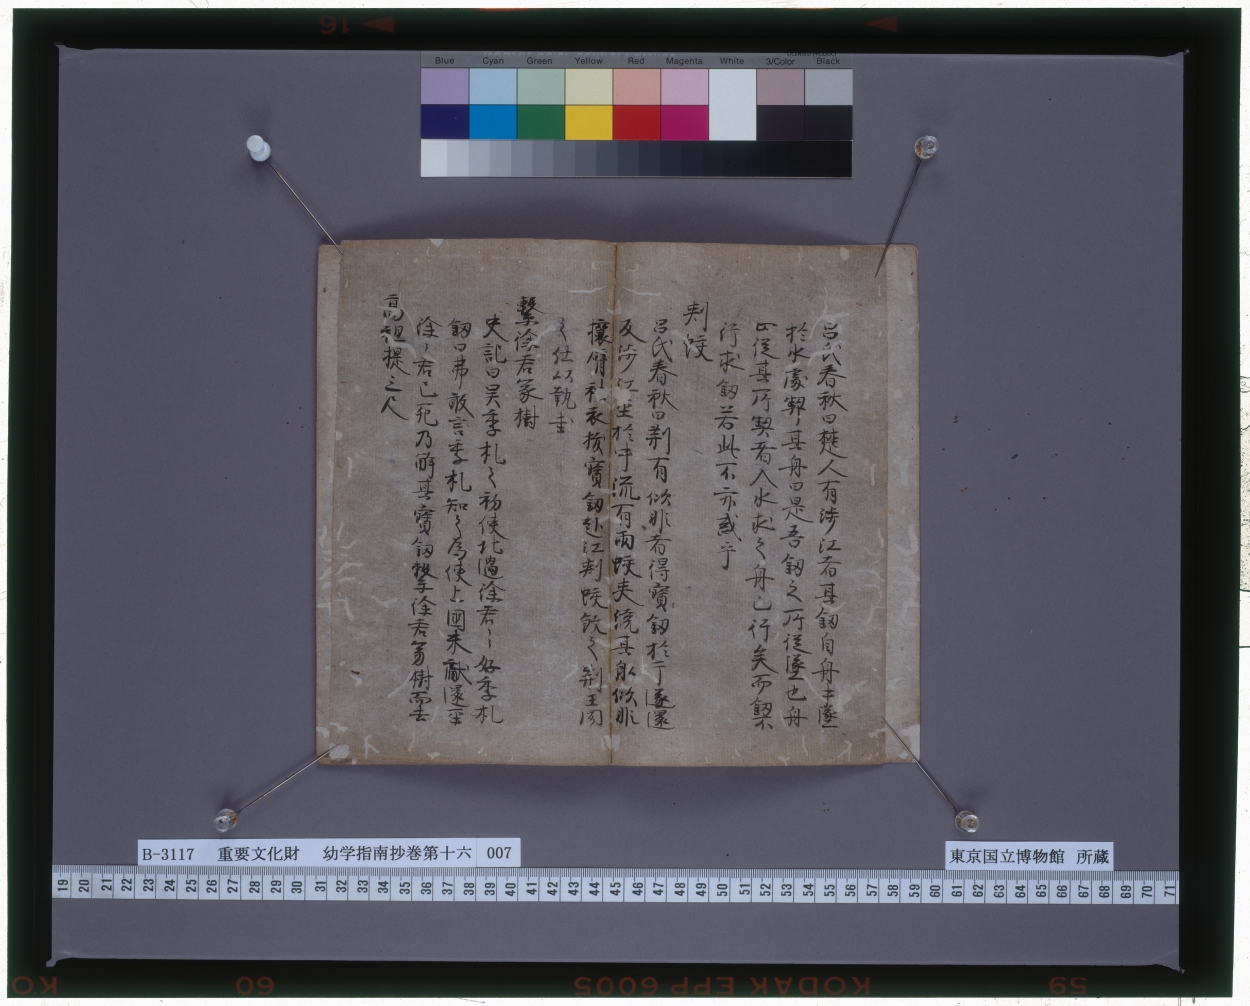 Blue Cyan Green Yellow Red Magenta White 3/Color Black
呂氏春秋曰楚人有渉江者其釼自舟中墜
於水處契其舟曰是吾釼之所従墜也舟
止従其所契者入水求之舟已行矣而釼不
行求釼若此不亦惑乎
刺蛟
呂氏春秋曰荊有佽非者得寶釼於于遂還
反渉江至於中流有兩蛟夾繞其舩佽非
攘臂袪衣拔寶釼赴江刺蛟殺之荊王聞
之仕以執圭
繋徐君冢樹
史記曰吴季札之初使北過徐君〻好季札
釼口弗敢言季札知之為使上國未獻還至
徐〻君已死乃解其寶釼繋徐君冢樹而去
高祖提三尺
B-3117 重要文化財 幼学指南抄巻第十六 007
東京国立博物館 所蔵
19 20 21 22 23 24 25 26 27 28 29 30 31 32 33 34 35 36 37 38 39 40 41 42 43 44 45 46 47 48 49 50 51 52 53 54 55 56 57 58 59 60 61 62 63 64 65 66 67 68 69 70 71
KODAK EPP 6005
59
60
16
KO